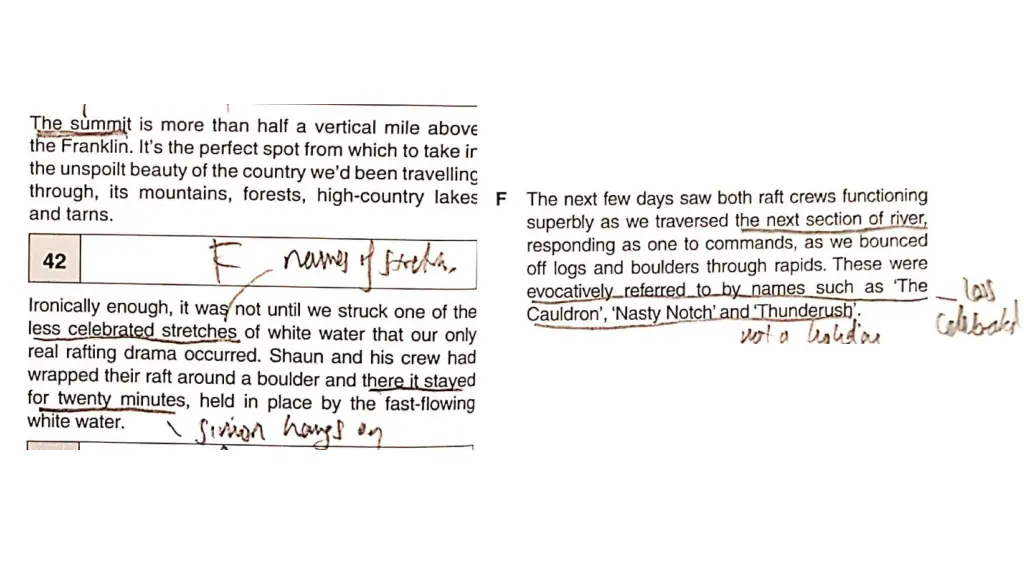 The summit is more than half a vertical mile above
the Franklin. It's the perfect spot from which to take in
the unspoilt beauty of the country we'd been travelling
through, its mountains, forests, high-country lakes
and tarns.
42 F names of
Ironically enough, it was not until we struck one of the
less celebrated stretches of white water that our only
real rafting drama occurred. Shaun and his crew had
wrapped their raft around a boulder and there it stayed
for twenty minutes, held in place by the fast-flowing
white water.
hangs on
F The next few days saw both raft crews functioning
superbly as we traversed the next section of river,
responding as one to commands, as we bounced
off logs and boulders through rapids. These were
evocatively referred to by names such as 'The
Cauldron', 'Nasty Notch' and 'Thunderush'.
less
celebrated
not a